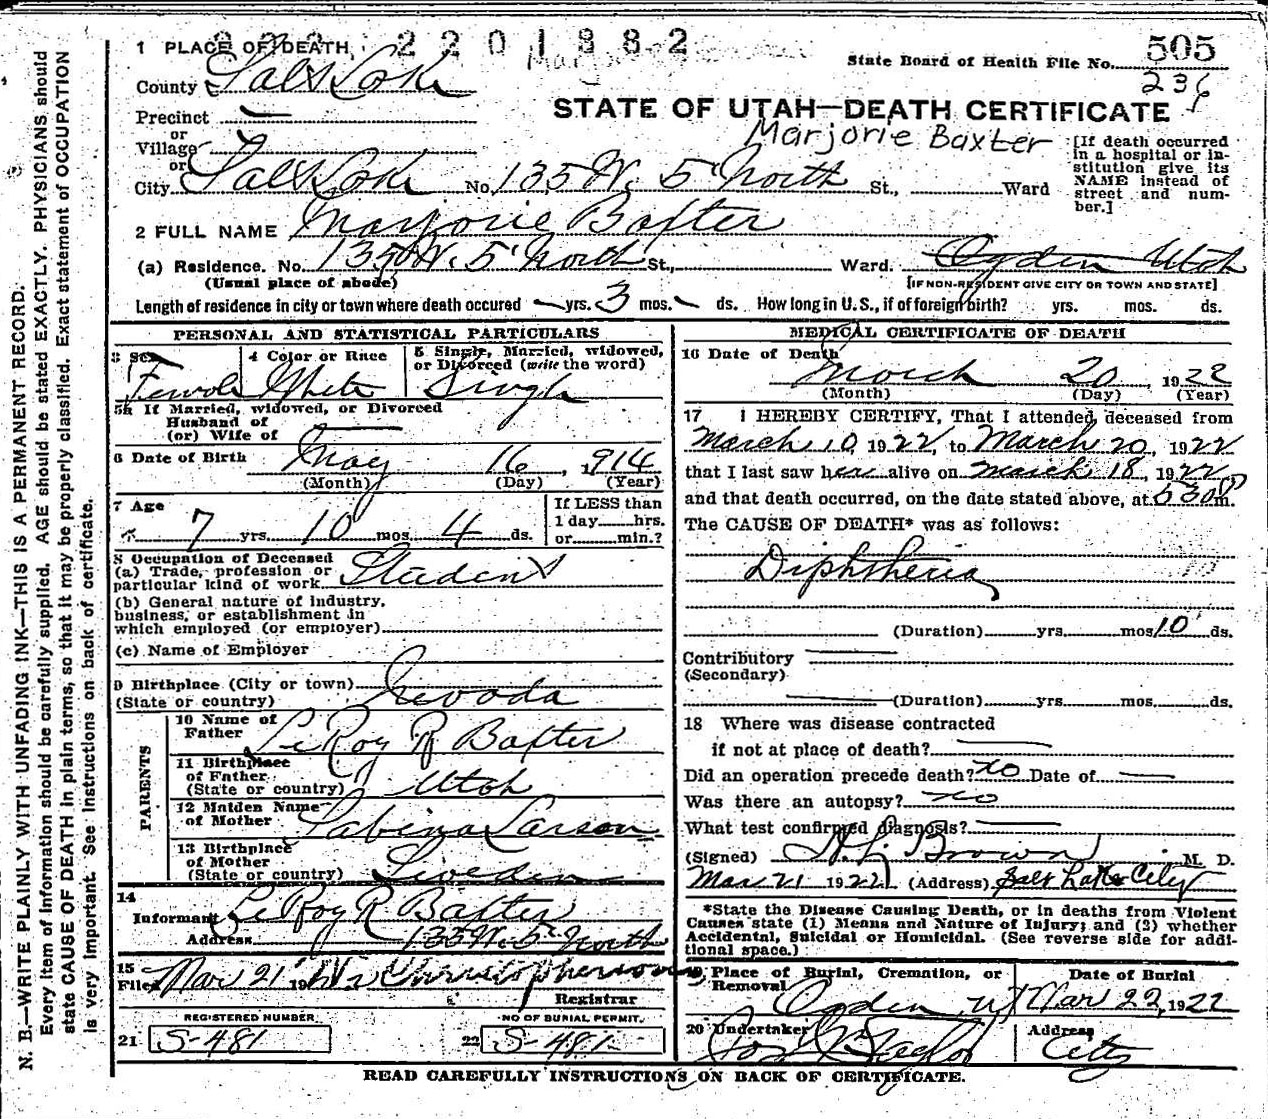 1 PLACE OF DEATH 2201882
State Board of Health File No. 505
236
County Salt Lake
STATE OF UTAH—DEATH CERTIFICATE
Precinct —
or
Village
or
Marjorie Baxter
[If death occurred in a hospital or institution give its NAME instead of street and number.]
City Salt Lake No. 135 W. 5' North St., Ward
2 FULL NAME Marjorie Baxter
(a) Residence. No. 135 W. 5' North St., Ward. Ogden Utah
(Usual place of abode) [IF NON-RESIDENT GIVE CITY OR TOWN AND STATE]
Length of residence in city or town where death occured — yrs. 3 mos. — ds. How long in U. S., if of foreign birth? yrs. mos. ds.
PERSONAL AND STATISTICAL PARTICULARS
3 Sex Female
4 Color or Race White
5 Single, Married, widowed, or Divorced (write the word) Single
5a If Married, widowed, or Divorced
Husband of
(or) Wife of —
6 Date of Birth May 16, 1914
(Month) (Day) (Year)
7 Age 7 yrs. 10 mos. 4 ds.
If LESS than
1 day hrs.
or min.?
8 Occupation of Deceased
(a) Trade, profession or
particular kind of work Student
(b) General nature of industry,
business, or establishment in
which employed (or employer)
(c) Name of Employer
9 Birthplace (City or town)
(State or country) Nevada
PARENTS
10 Name of
Father LeRoy R Baxter
11 Birthplace
of Father
(State or country) Utah
12 Maiden Name
of Mother Sabina Larson
13 Birthplace
of Mother
(State or country) Sweden
14
Informant LeRoy R Baxter
Address 135 W. 5' North
15
Filed Mar 21 19 Christopherson
Registrar
REGISTERED NUMBER. NO OF BURIAL PERMIT.
21 S-481 22 S-481
MEDICAL CERTIFICATE OF DEATH
16 Date of Death
March 20, 1922
(Month) (Day) (Year)
17 I HEREBY CERTIFY, That I attended deceased from
March 10 1922, to March 20, 1922
that I last saw her alive on March 18, 1922
and that death occurred, on the date stated above, at 530 P m.
The CAUSE OF DEATH* was as follows:
Diphtheria
(Duration) yrs. mos. 10 ds.
Contributory —
(Secondary)
— (Duration) yrs. mos. ds.
18 Where was disease contracted
if not at place of death? —
Did an operation precede death? no Date of —
Was there an autopsy? no
What test confirmed diagnosis? —
(Signed) Brown M. D.
Mar 21 1922 (Address) Salt Lake City
*State the Disease Causing Death, or in deaths from Violent
Causes state (1) Means and Nature of Injury; and (2) whether
Accidental, Suicidal or Homicidal. (See reverse side for addi-
tional space.)
19 Place of Burial, Cremation, or
Removal Ogden, Ut
Date of Burial
Mar 22, 1922
20 Undertaker Jos Taylor
Address
City
READ CAREFULLY INSTRUCTIONS ON BACK OF CERTIFICATE.
N. B.—WRITE PLAINLY WITH UNFADING INK—THIS IS A PERMANENT RECORD.
Every item of information should be carefully supplied. AGE should be stated EXACTLY. PHYSICIANS should
state CAUSE OF DEATH in plain terms, so that it may be properly classified. Exact statement of OCCUPATION
is very important. See instructions on back of certificate.